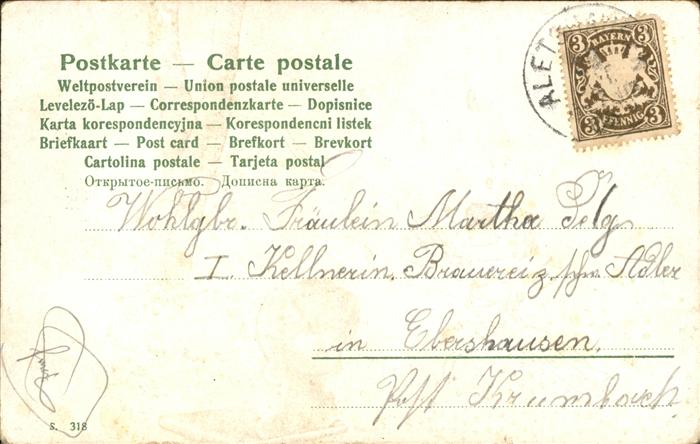 Postkarte — Carte postale
Weltpostverein — Union postale universelle
Levelező-Lap — Correspondenzkarte — Dopisnice
Karta korespondencyjna — Korespondencni listek
Briefkaart — Post card — Brefkort — Brevkort
Cartolina postale — Tarjeta postal
Открытое-письмо. Дописна карта.
ALET
3 BAYERN 3
3 PFENNIG 3
Wohlgbr. Fräulein Martha Selg
I. Kellnerin. Brauerei z. schw. Adler
in Ebershausen.
Post Krumbach.
S. 318